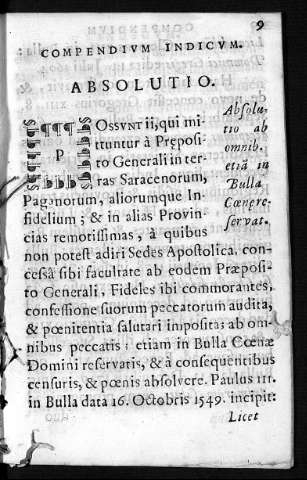 9
COMPENDIVM INDICVM.
ABSOLUTIO.
POSSVNT ii, qui mi-
ttuntur à Præposi-
to Generali in ter-
ras Saracenorum,
Paganorum, aliorumque In-
fidelium; & in alias Provin-
cias remotissimas, à quibus
non potest adiri Sedes Apostolica, con-
cessâ sibi facultate ab eodem Præposi-
to Generali, Fideles ibi commorantes,
confessione suorum peccatorum audita,
& pœnitentia salutari imposita; ab om-
nibus peccatis; etiam in Bulla Cœnæ
Domini reservatis, & à consequentibus
censuris, & pœnis absolvere. Paulus III.
in Bulla data 16. Octobris 1549. incipit:
Licet
Absolu-
tio ab
omnib.
etiā in
Bulla
Cœnæ re-
servat.